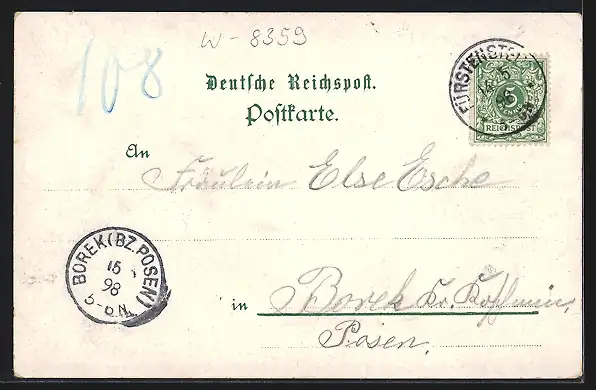 W - 8359
108
Deutsche Reichspost.
Postkarte.
FÜRSTENSTEIN
5
REICHSPOST
An
Fräulein Else Esche
BOREK (BZ. POSEN)
15
98
5-6N.
in Borek Kr. Koschmin,
Posen.